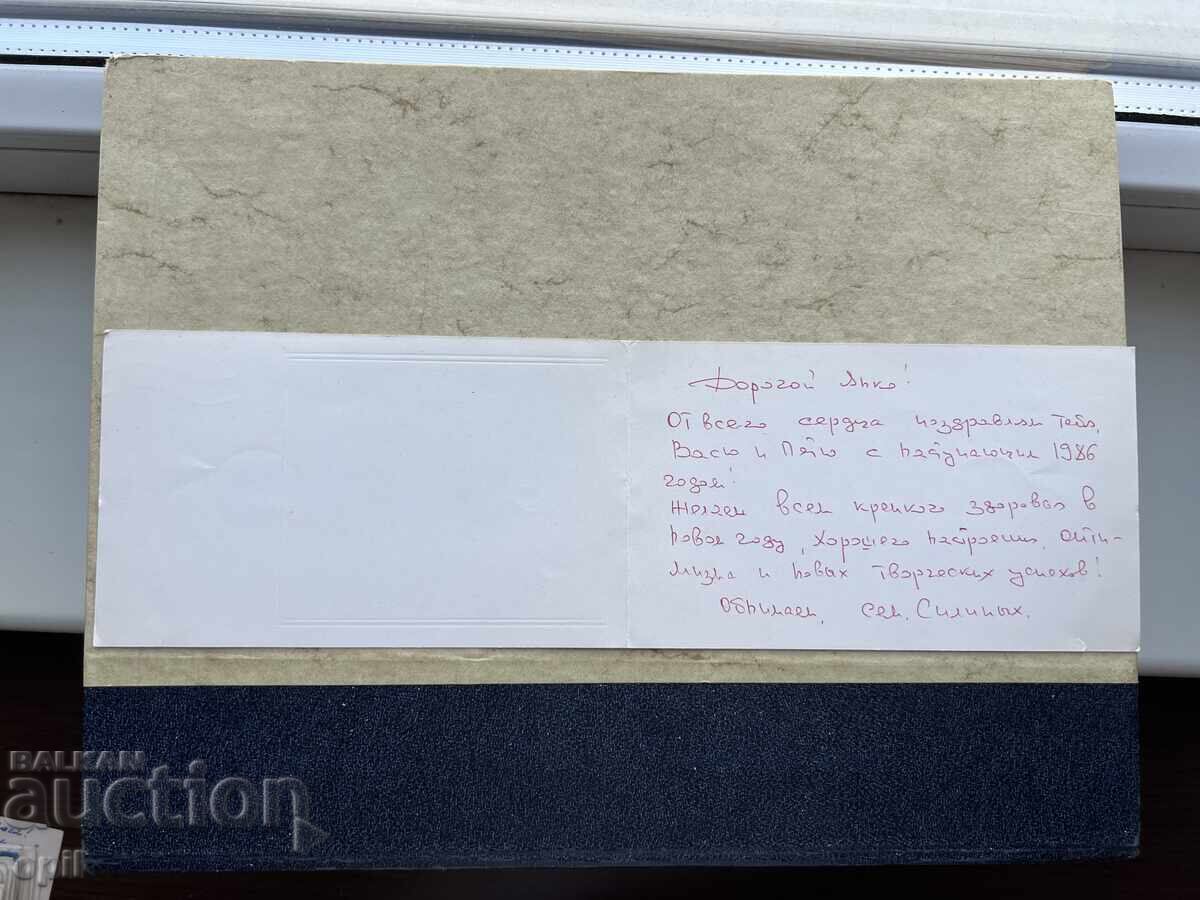 Дорогой Янко!
От всего сердца поздравляем тебя,
Васю и Петю с наступающим 1986
годом!
Желаем всем крепкого здоровья в
новом году, хорошего настроения, опти-
мизма и новых творческих успехов!
Обнимаем, сем. Силиных.
BALKAN
auction
opik